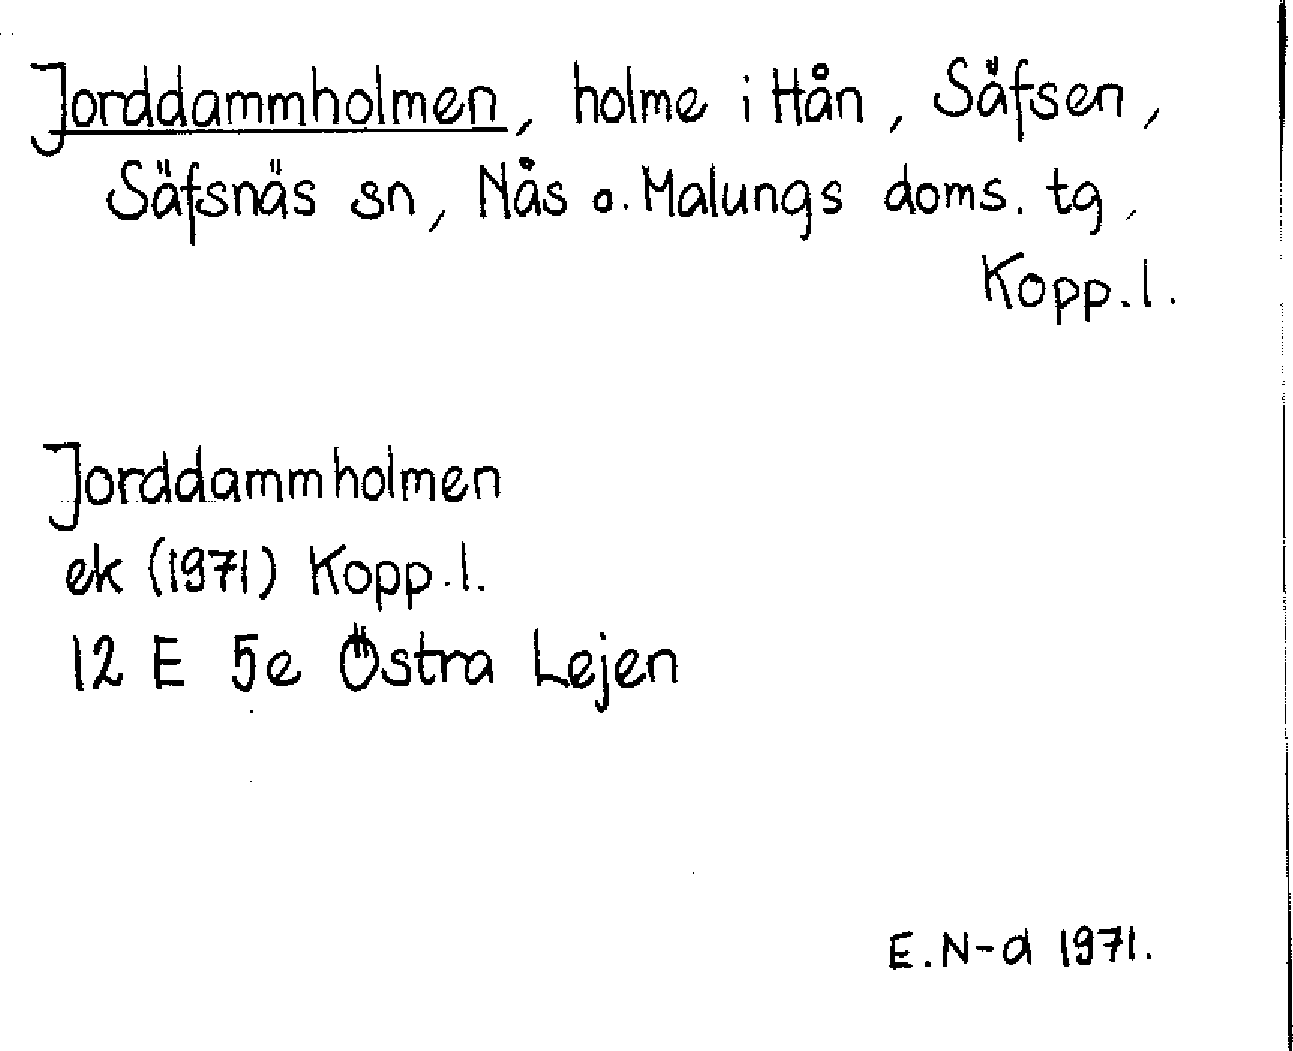 Jorddammholmen, holme i Hån, Säfsen,
Säfsnäs sn, Nås o. Malungs doms. tg,
Kopp. l.
Jorddammholmen
ek (1971) Kopp. l.
12 E 5e Östra Lejen
E. N-d 1971.